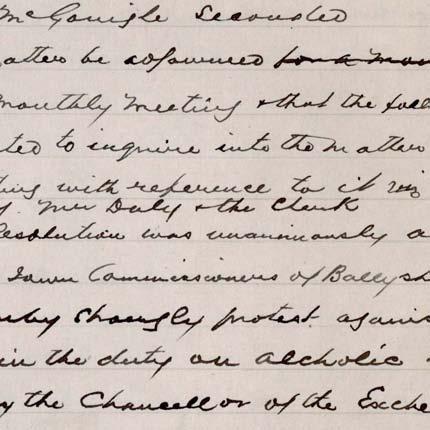 McGonigle Seconded
matter be adjourned for a Mon
Monthly Meeting & that the foll
ted to inquire into the matter
thing with reference to it viz
Mr Daly & the Clerk
Resolution was unanimously a
Town Commissioners of Ballysh
eby strongly protest against
in the duty on alcholic
by the Chancellor of the Exche